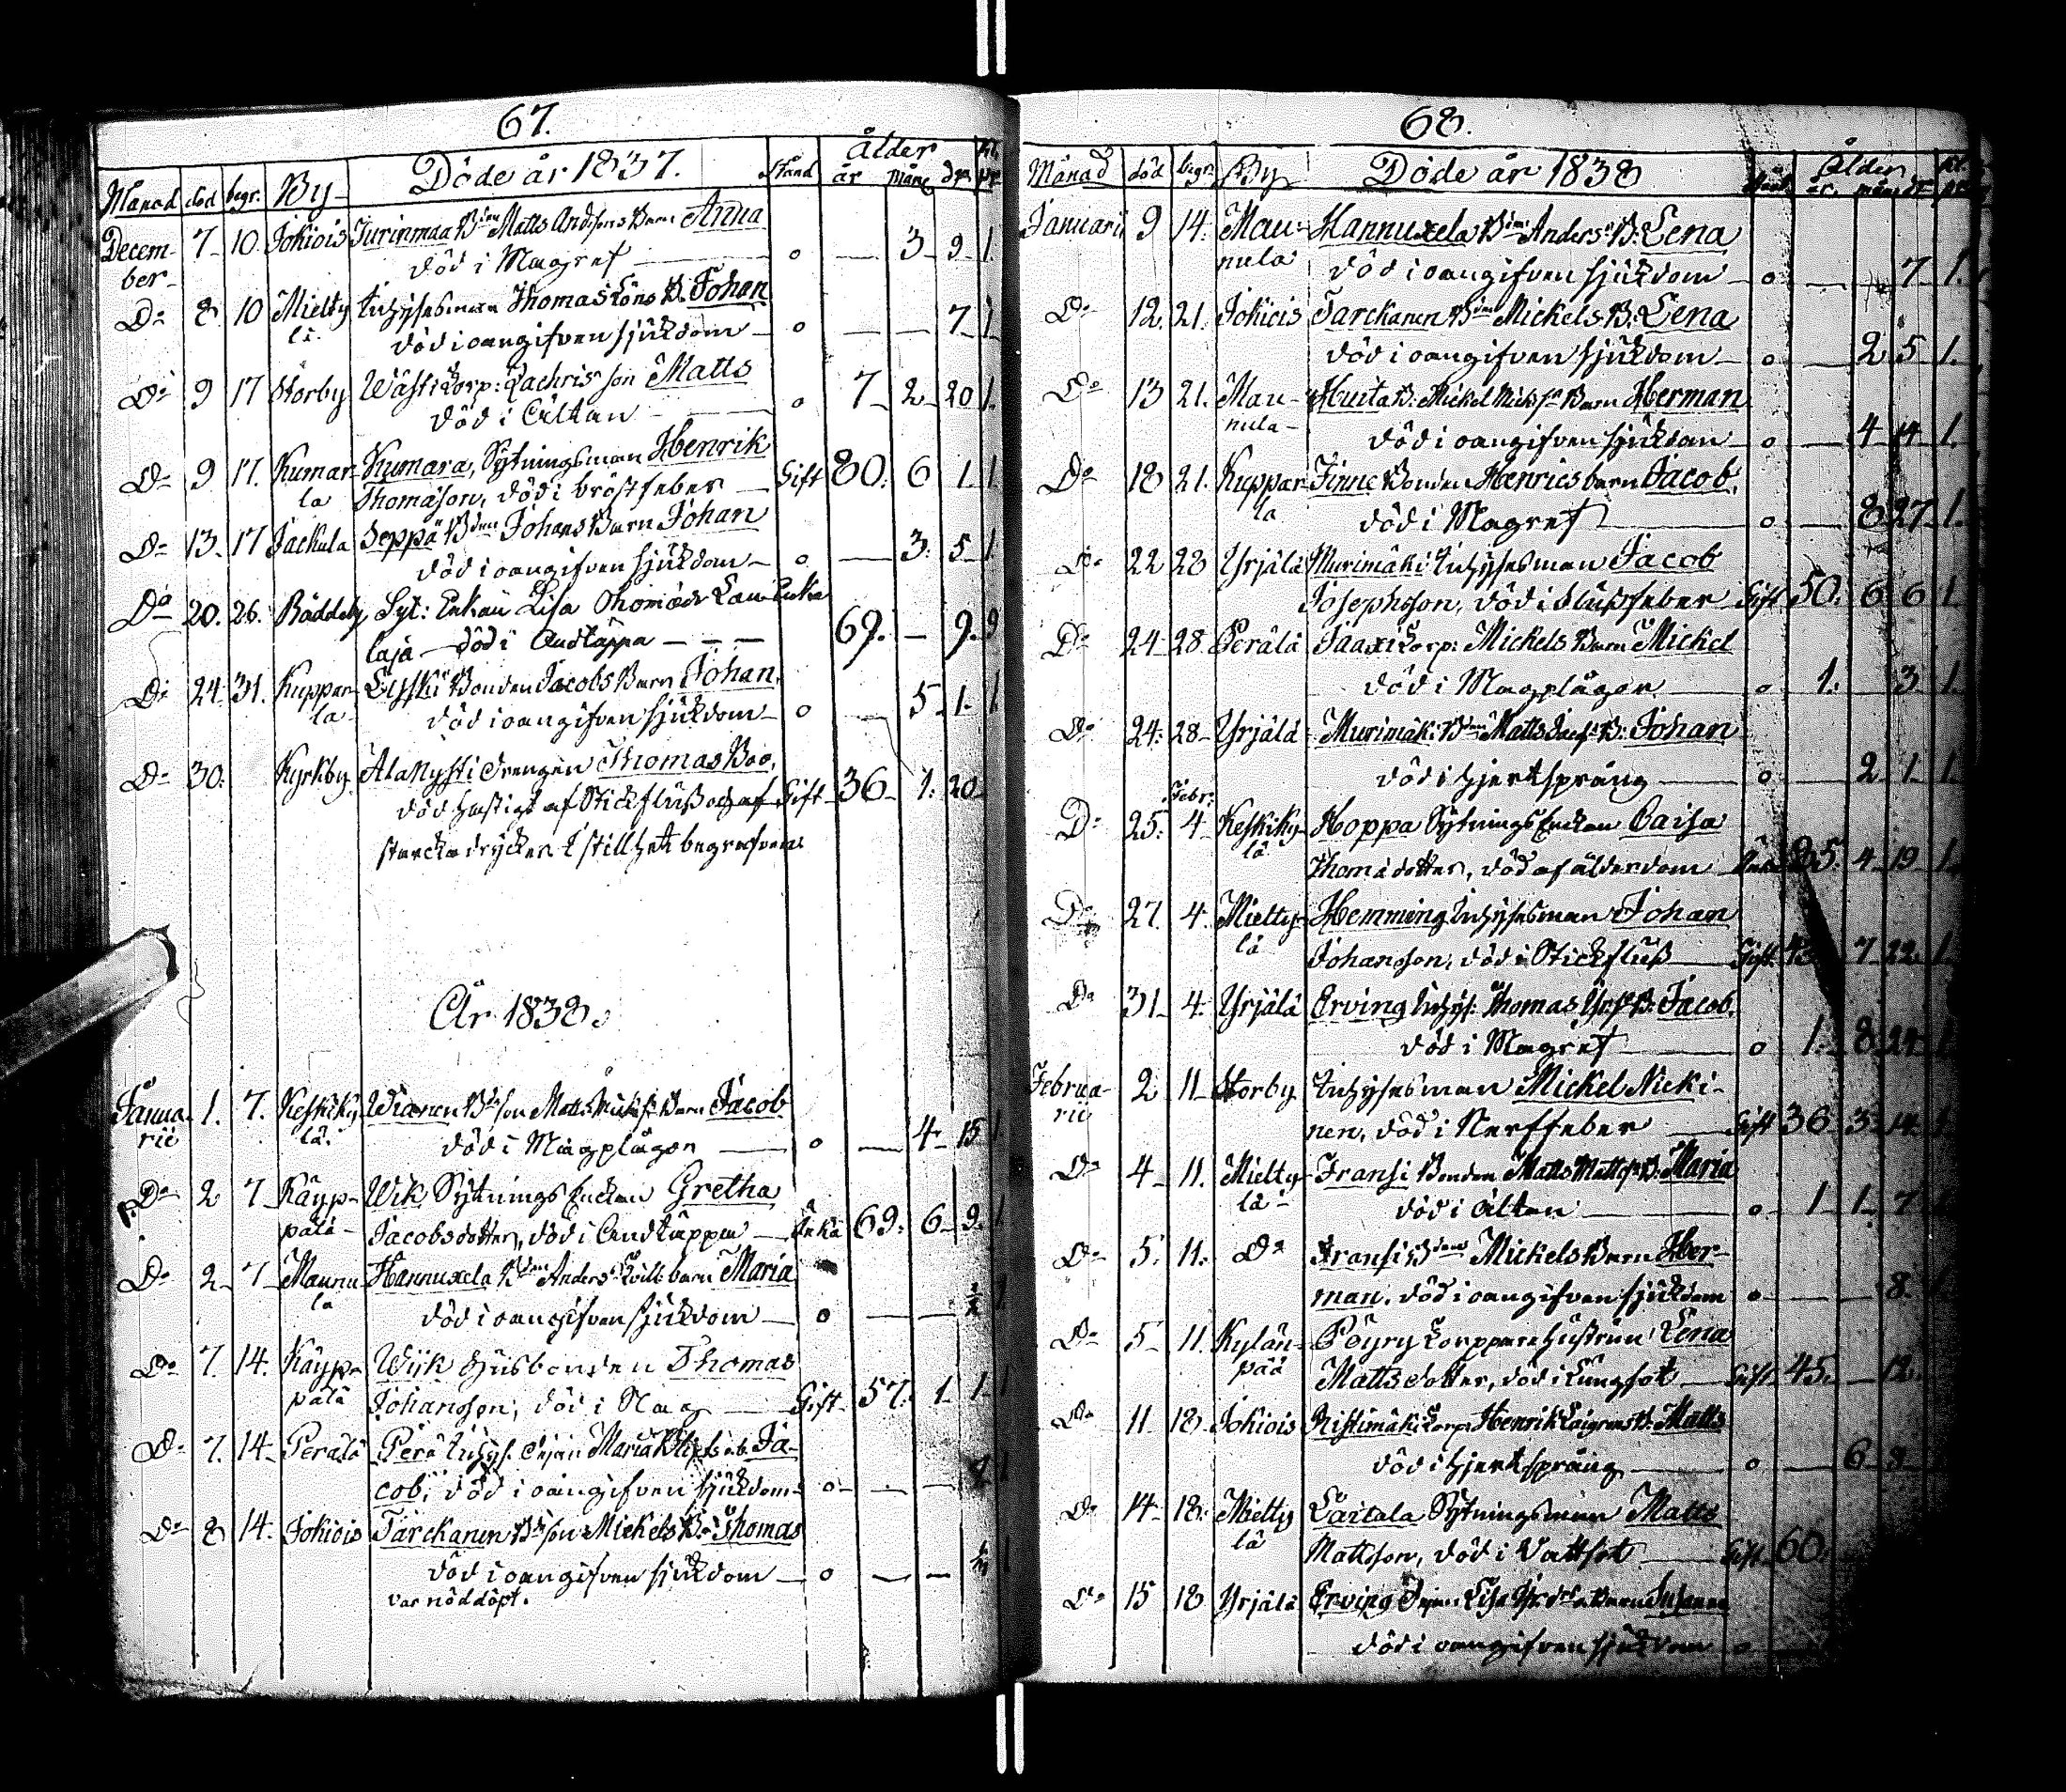 67.
Månad död begr. By Döde år 1837. Stånd Ålder
år mån
Decem- 7 10. Jokiois Jurinmaa Bdens Matts Andssons Barn Anna
ber död i Magref o — 3 9 1.
Do 8 10 Mielty Inhysesman Thomas Barn Johan
lä. död i oangifven sjukdom o — — 7 1
Do 9 17 Storby Wästi Torp: Zachris son Matts
död i Ältan o 7 2 20 1.
Do 9 17. Kumar- Kumara, Sytningsman Henrik
la Thomasson, död i bröstfeber Gift 80. 6 1 1
Do 13 17 Jackula Seppä Bden Johans Barn Johan
död i oangifven sjukdom o — 3. 5 1
Do 20. 26. Räddeby Syt: Enkan Lisa Thomasdr Lau- Enka
laja — död i Andtäppa — — — 69. — 9. 9
Do 24. 31. Kuppar- Bonden Jacobs Barn Johan.
la död i oangifven sjukdom o — 5 1 1
Do 30. Kyrkby Ala Nysti Drengen Thomas Boo,
död hastigt af Stickfluß och af Gift 36 1. 20
starcka drycker i stillhet begrafven.
År 1838.
Janua- 1. 7. Keskiky- Wianen Bdson Matts Barn Jacob
rii lä. död i Magplågor o — 4 15 1
Do 2 7 Käyp- Wik Sytnings Enckan Gretha
pälä Jacobsdotter, död i Andtäppa Enka 69. 6 9. 1
Do 2 7 Maunu- Hannuxela Bden Anders Tvill. barn Maria
la död i oangifven sjukdom o — — ½ 1
Do 7. 14. Käyp- Wijk husbonden Thomas
pälä Johansson, död i Gift 57. 1 1 1
Do 7. 14 Perälä Perä Inhys. Pigan Maria Ja-
cob, död i oangifven sjukdom o — —
Do 8 14. Jokiois Tarckanen Bdson Mickels B. Thomas
död i oangifven sjukdom o — —
var nöddöpt.
68.
Månad död begr. By Döde år 1838 Stånd Ålder
Januarii 9 14. Mau- Hannuxela Bdens Anders B: Lena
nula död i oangifven sjukdom o — 7 1.
Do 12. 21. Jokiois Tarckanen Bdens Mickels B: Lena
död i oangifven sjukdom o — 2 5 1.
Do 13 21. Mau- Huita B: Mickel Barn Herman
nula död i oangifven sjukdom o — 4 14 1.
Do 18 21. Kuppar- Finne Bonden Henrics barn Jacob,
la död i Magref o — 8 27 1.
Do 22 28 Yrjälä Murimäki Inhysesman Jacob
Josephsson, död i Flußfeber Gift 50. 6 6 1
Do 24 28 Perälä Jaaxi Torp: Mickels Barn Mickel
död i Magplågor o 1. 3 1.
Do 24. 28 Yrjälä Murimäki Bdens Matts B: Johan
död i hjertsprång o 2 1 1.
Febr:
Do 25. 4 Keskiky- Hoppa Sytnings Enckan Caisa
lä Thomasdotter, död af ålderdom Enka 85. 4 19 1.
Do 27. 4. Mielty- Hemming Inhysesman Johan
lä Johansson, död i Stickfluß Gift 7 22. 1
Do 31 4. Yrjälä Erving Inhys: Thomas B: Jacob.
död i Magref o 1. 8 24 1
Februa- 2 11 Storby Inhysesman Mickel Nicki-
rii nen, död i Nerffeber Gift 36 3 14
Do 4 11. Mielty- Fransi Bonden Matts Mattss B: Maria
lä död i Ältan o 1 1 7
Do 5. 11. Do Fransi Bdens Mickels Barn Her-
man, död i oangifven sjukdom o — — 8.
Do 5 11. Kylän- Pöyry Torppare hustrun Lena
pää Mattsdotter, död i Lungsot Gift 45. — 12.
Do 11 18 Jokiois Ristimäki Torp: Henrik B: Matts
död i hjertsprång o — 6 8
Do 14 18. Mielty- Laitala Sytningsman Matts
lä Mattsson, död i Vattsot Gift 60.
Do 15 18 Yrjälä Erving Pigan Lisa Barn
död i oangifven sjukdom o